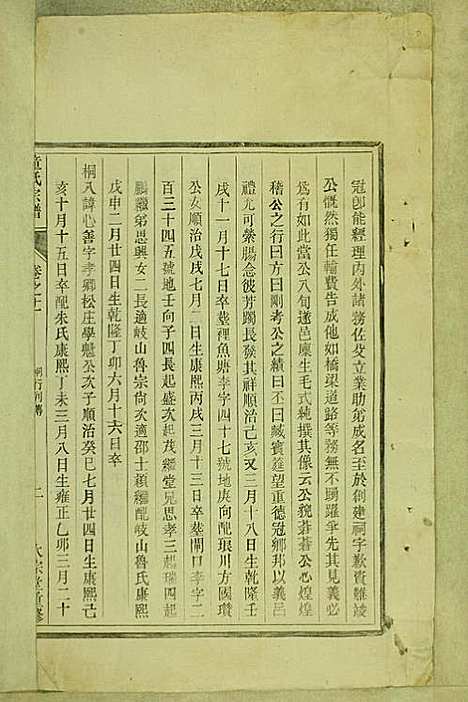 冠即能經理內外諸務佐殳立業助弟成名至於創建祠宇歉費難竣
公慨然獨任輸費告成他如橋渠道路等務無不踴躍爭先其見義必
為有如此當公八旬遂邑廩生毛式純撰其像云公貌蒼蒼公心煌煌
稽公之行曰方曰剛考公之績曰否曰臧賓筵望重德冠鄉邦以義邑
禮尤可縈腸念彼芳躅長發其祥順治己亥又三月十八日生乾隆壬
戌十一月十七日卒塟裡魚塘李字四十七號地庚向配琅川方國瓚
公女順治戊戌七月二日生康熙丙戌三月十三日卒塟閘口李字二
百三十四五號地壬向子四長起盛次起茂繼堂兄思孝三起瑞四起
鵬繼弟思興女二長適岐山魯宗尚次適邵士穎繼配岐山魯氏康熙
戊申二月廿四日生乾隆丁卯六月十六日卒
桐八諱心善字孝卿松庄學魁公次子順治癸巳七月廿四日生康熙己
亥十月十五日卒配朱氏康熙丁未三月八日生雍正乙卯三月二十
氏宗譜
卷之十一
桐行列傳
二
六宗堂首修